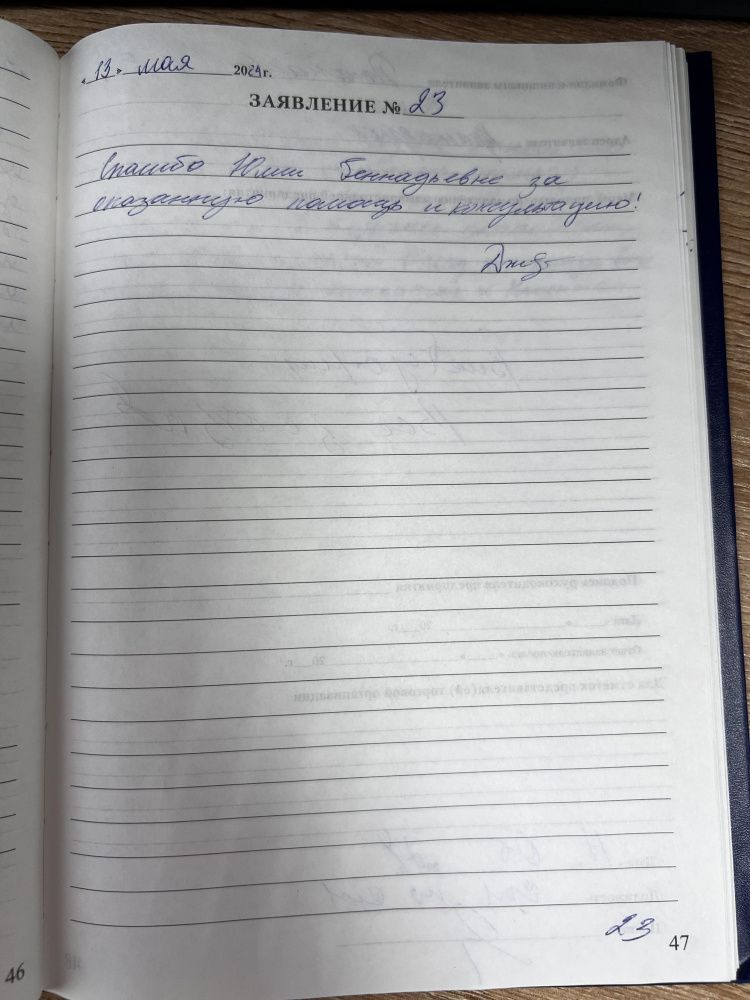 « 13 » мая 2024 г.
ЗАЯВЛЕНИЕ № 23
Спасибо Юлии Геннадьевне за
оказанную помощь и консультацию!
23
47
46